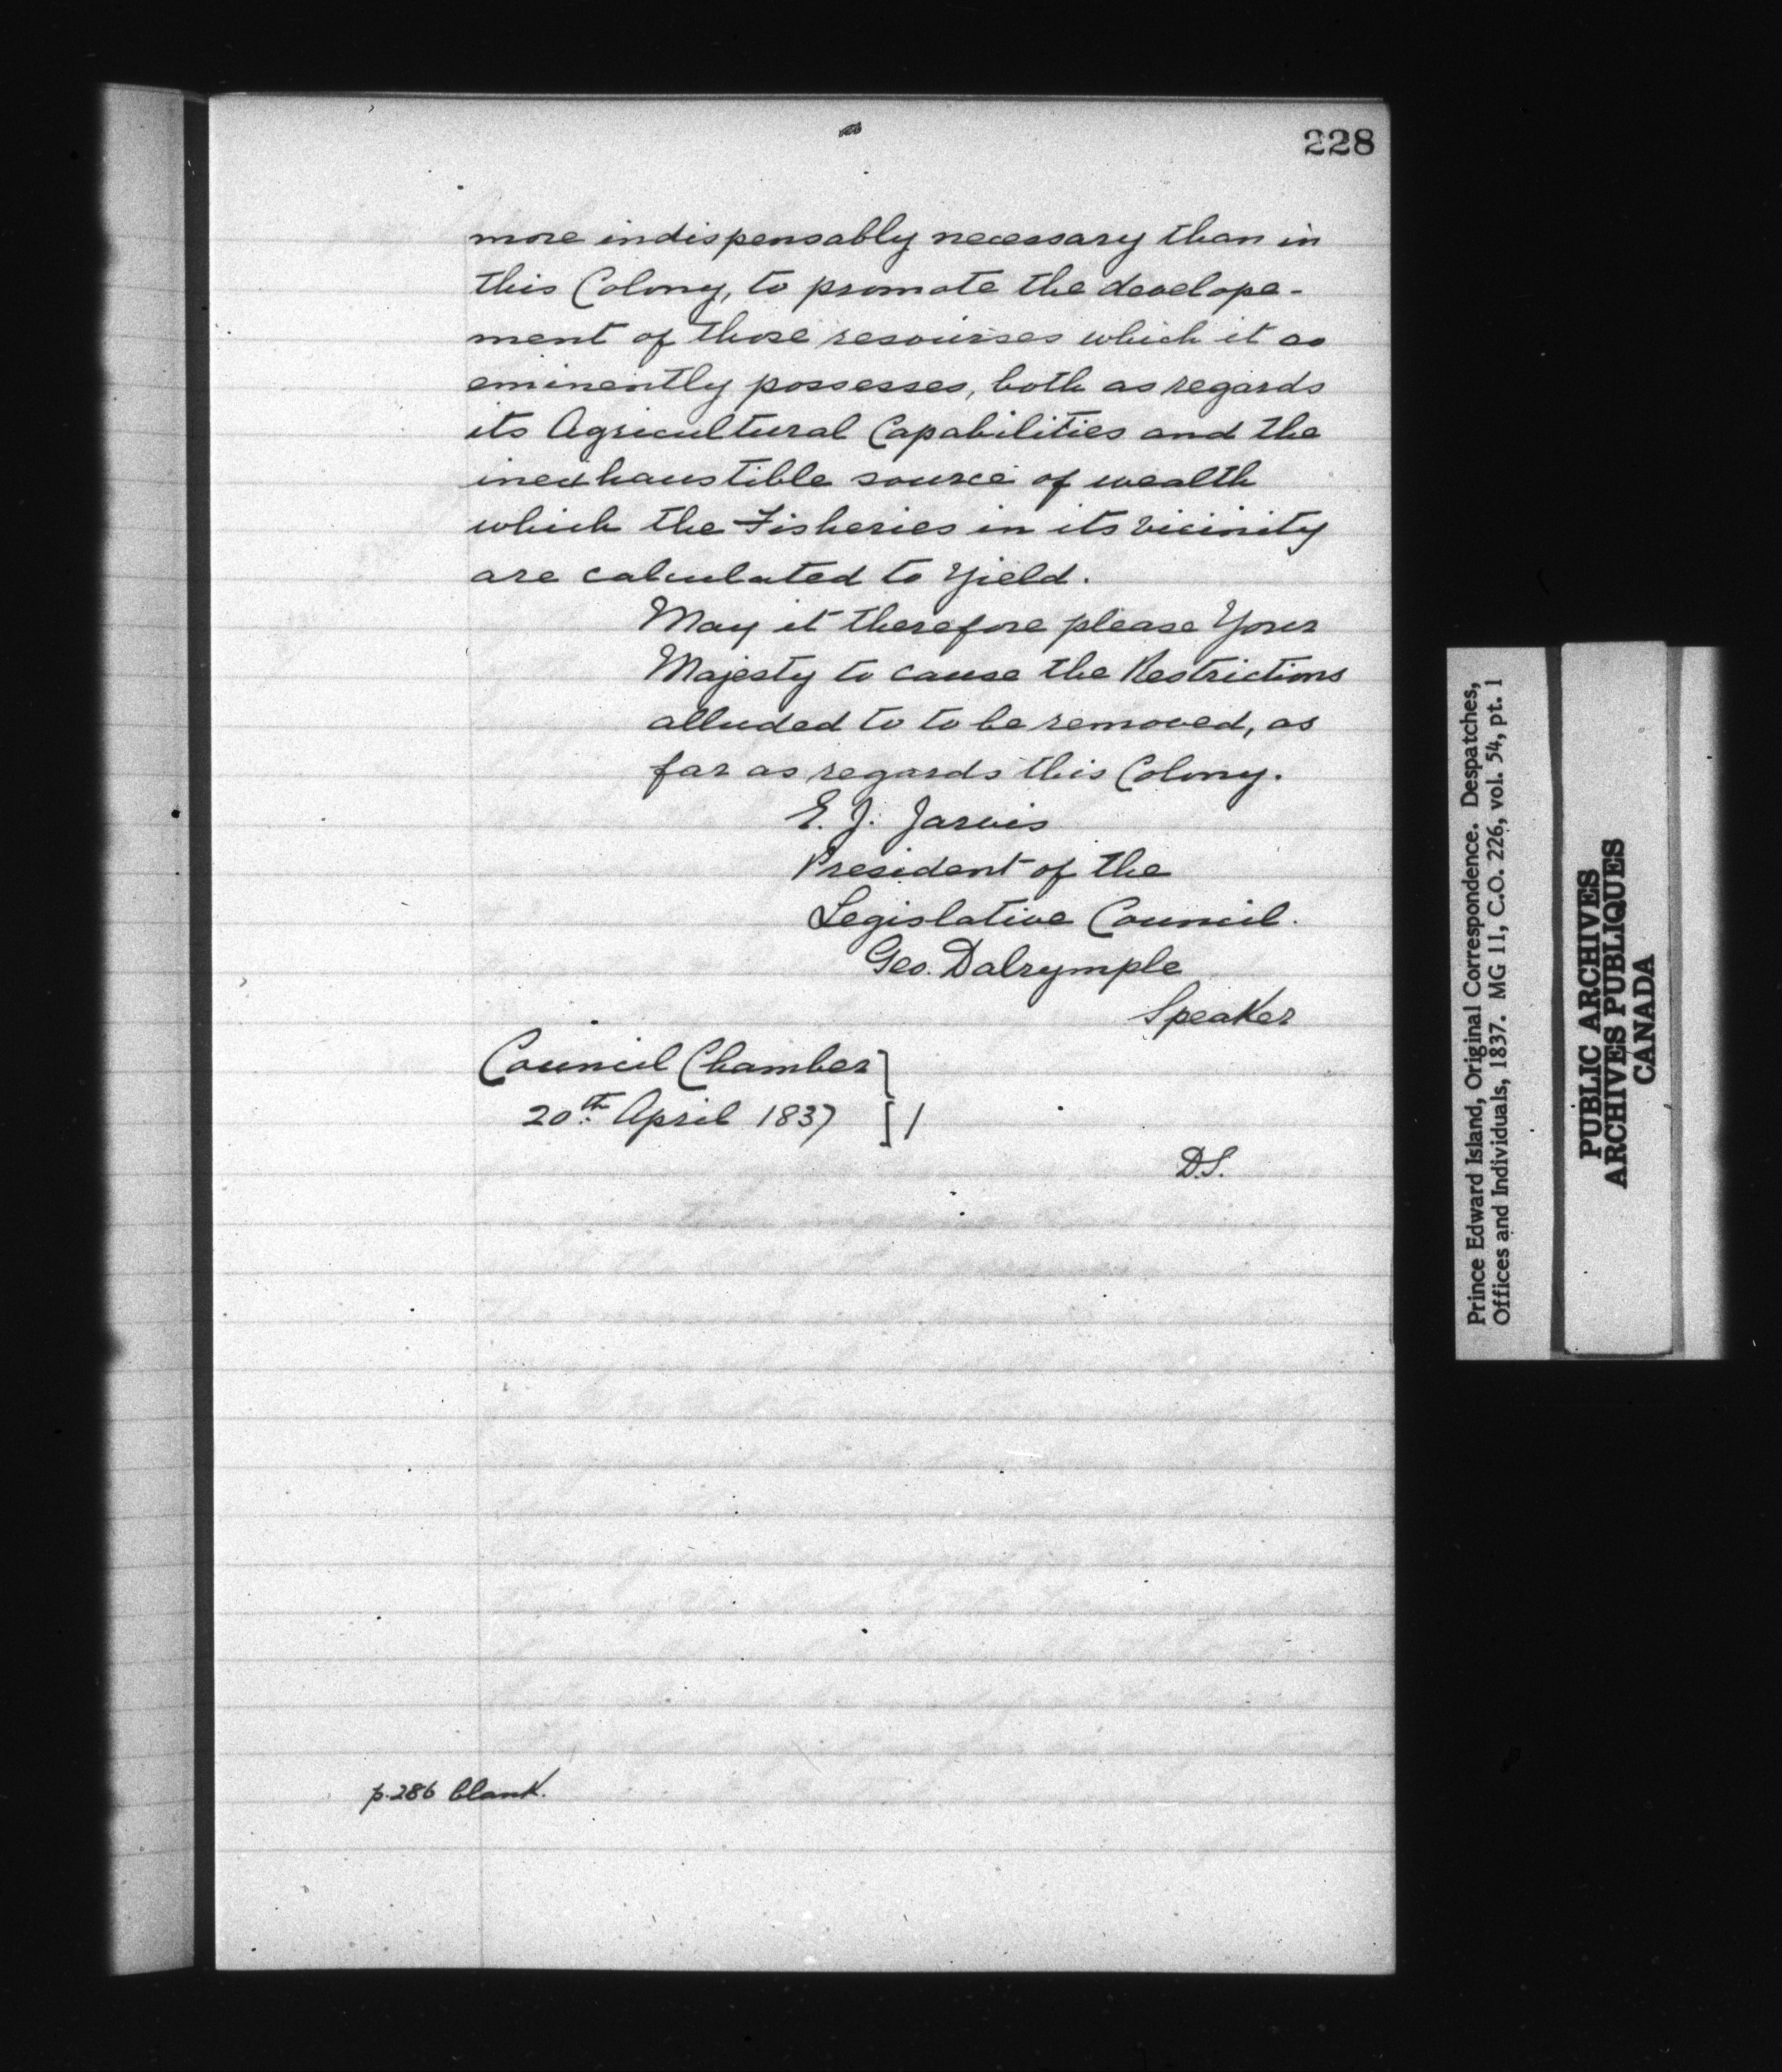 228
more indispensably necessary than in
this Colony, to promote the develope-
ment of those resourses which it so
eminently possesses, both as regards
its Agricultural Capabilities and the
inexhaustible source of wealth
which the Fisheries in its vicinity
are calculated to yield.
May it therefore please Your
Majesty to cause the Restrictions
alluded to to be removed, as
far as regards this Colony.
E. J. Jarvis
President of the
Legislative Council.
Geo. Dalrymple
Speaker
Council Chamber
20th April 1837
D.S.
p.286 blank.
Prince Edward Island, Original Correspondence. Despatches,
Offices and Individuals, 1837. MG 11, C.O. 226, vol. 54, pt. 1
PUBLIC ARCHIVES
ARCHIVES PUBLIQUES
CANADA